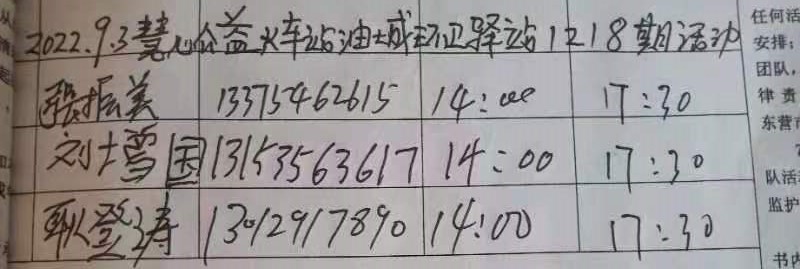 2022.9.3慧心公益火车站油城环卫驿站1218期活动
张振美 13375462615 14:00 17:30
刘士雪国 13153563617 14:00 17:30
耿登涛 13012917890 14:00 17:30
任何活
安排;
团队,
律责
东营市
队活
监护
书内